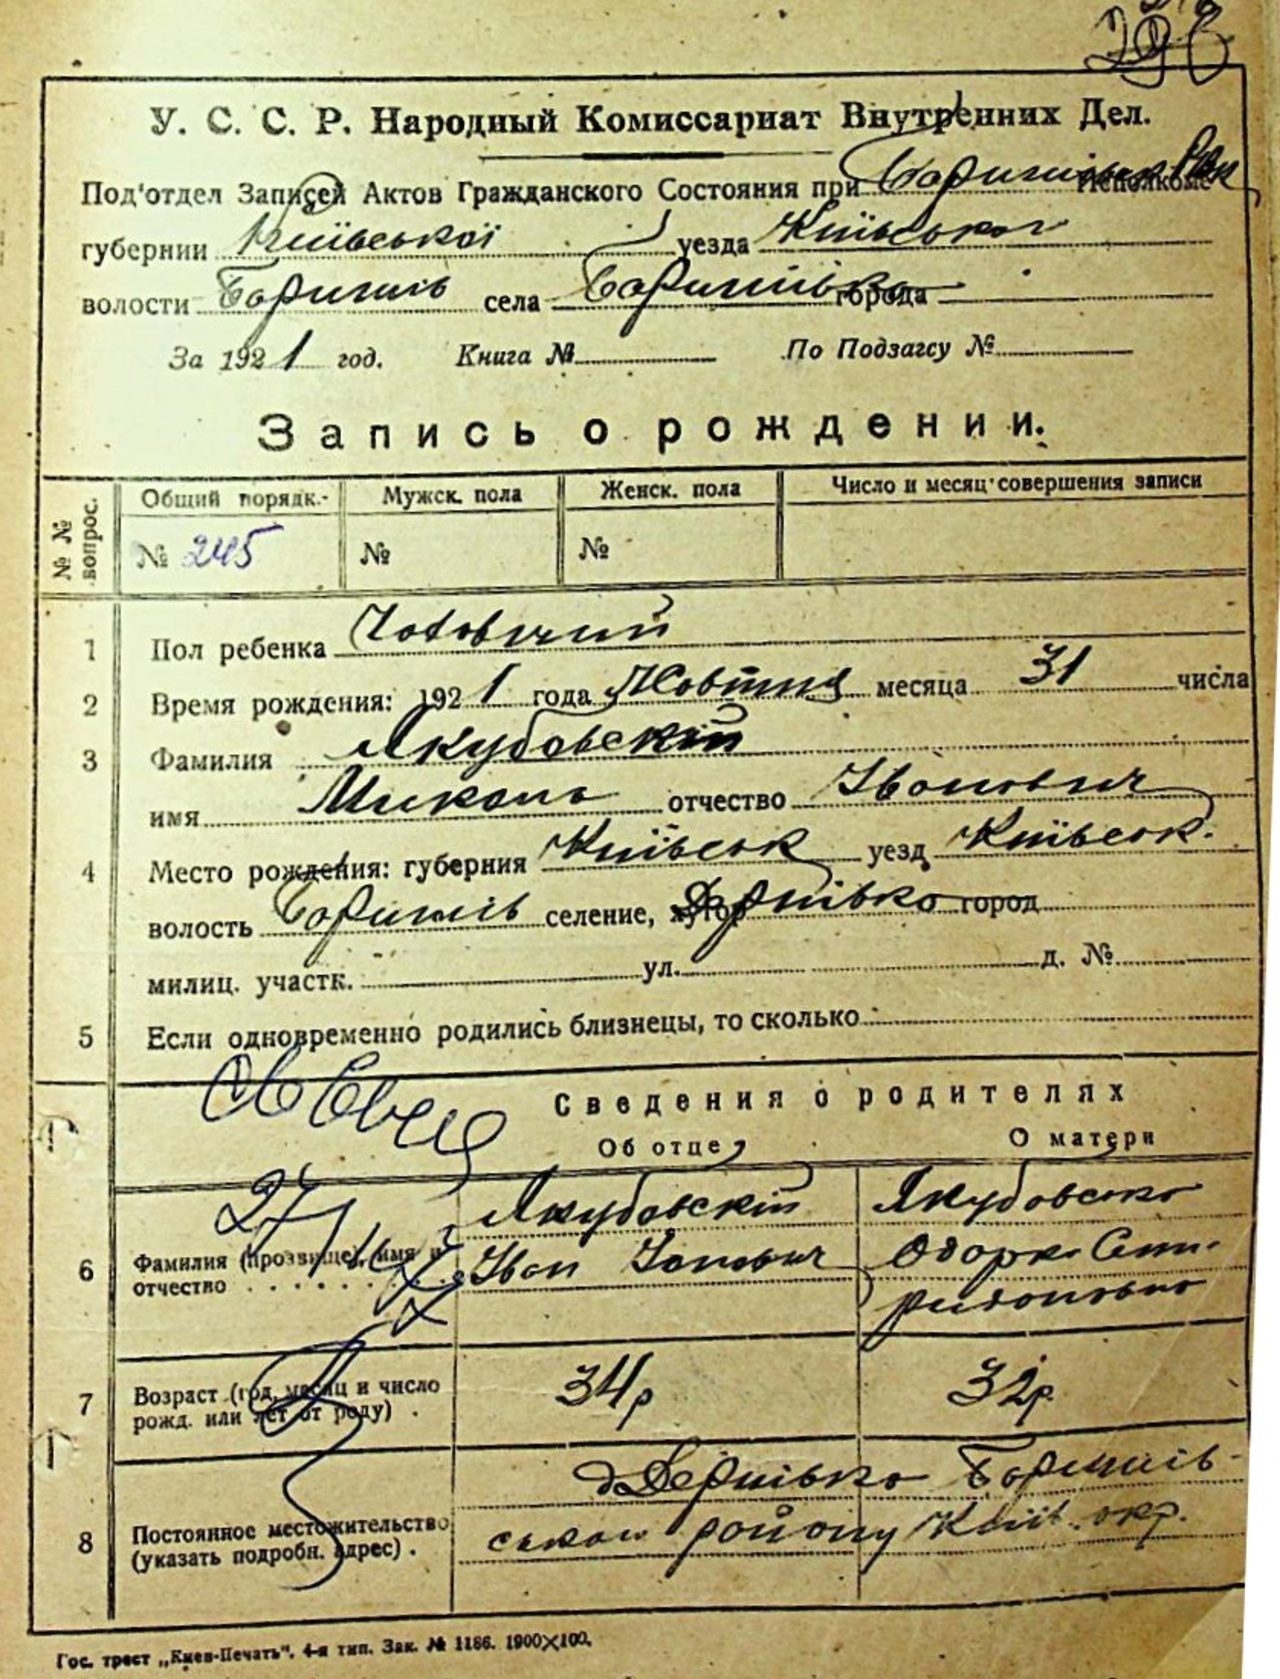 298
У. С. С. Р. Народный Комиссариат Внутренних Дел.
Под'отдел Записей Актов Гражданского Состояния при Исполкоме
губернии Київської уезда Київського
волости Баришів села Баришівка города
За 1921 год. Книга № По Подзагсу №
Запись о рождении.
№ № вопрос. Общий порядк. Мужск. пола Женск. пола Число и месяц совершения записи
№ 245 № №
1 Пол ребенка Чоловичий
2 Время рождения: 1921 года Жовтня месяца 31 числа
3 Фамилия Якубовский
имя Микола отчество Іванович
4 Место рождения: губерния Київськ уезд Київськ.
волость Баришів селение, хутор город
милиц. участк. ул. д. №
5 Если одновременно родились близнецы, то сколько
Сведения о родителях
Об отце О матери
6 Фамилия (прозвище), имя и отчество Якубовскій Якубовсько
Іван Одорка
7 Возраст (год, месяц и число рожд. или лет от роду) 34р 32р.
8 Постоянное местожительство (указать подробн. адрес)
району Київ. окр.
Гос. трест „Киев-Печать“. 4-я тип. Зак. № 1186. 1900×100.